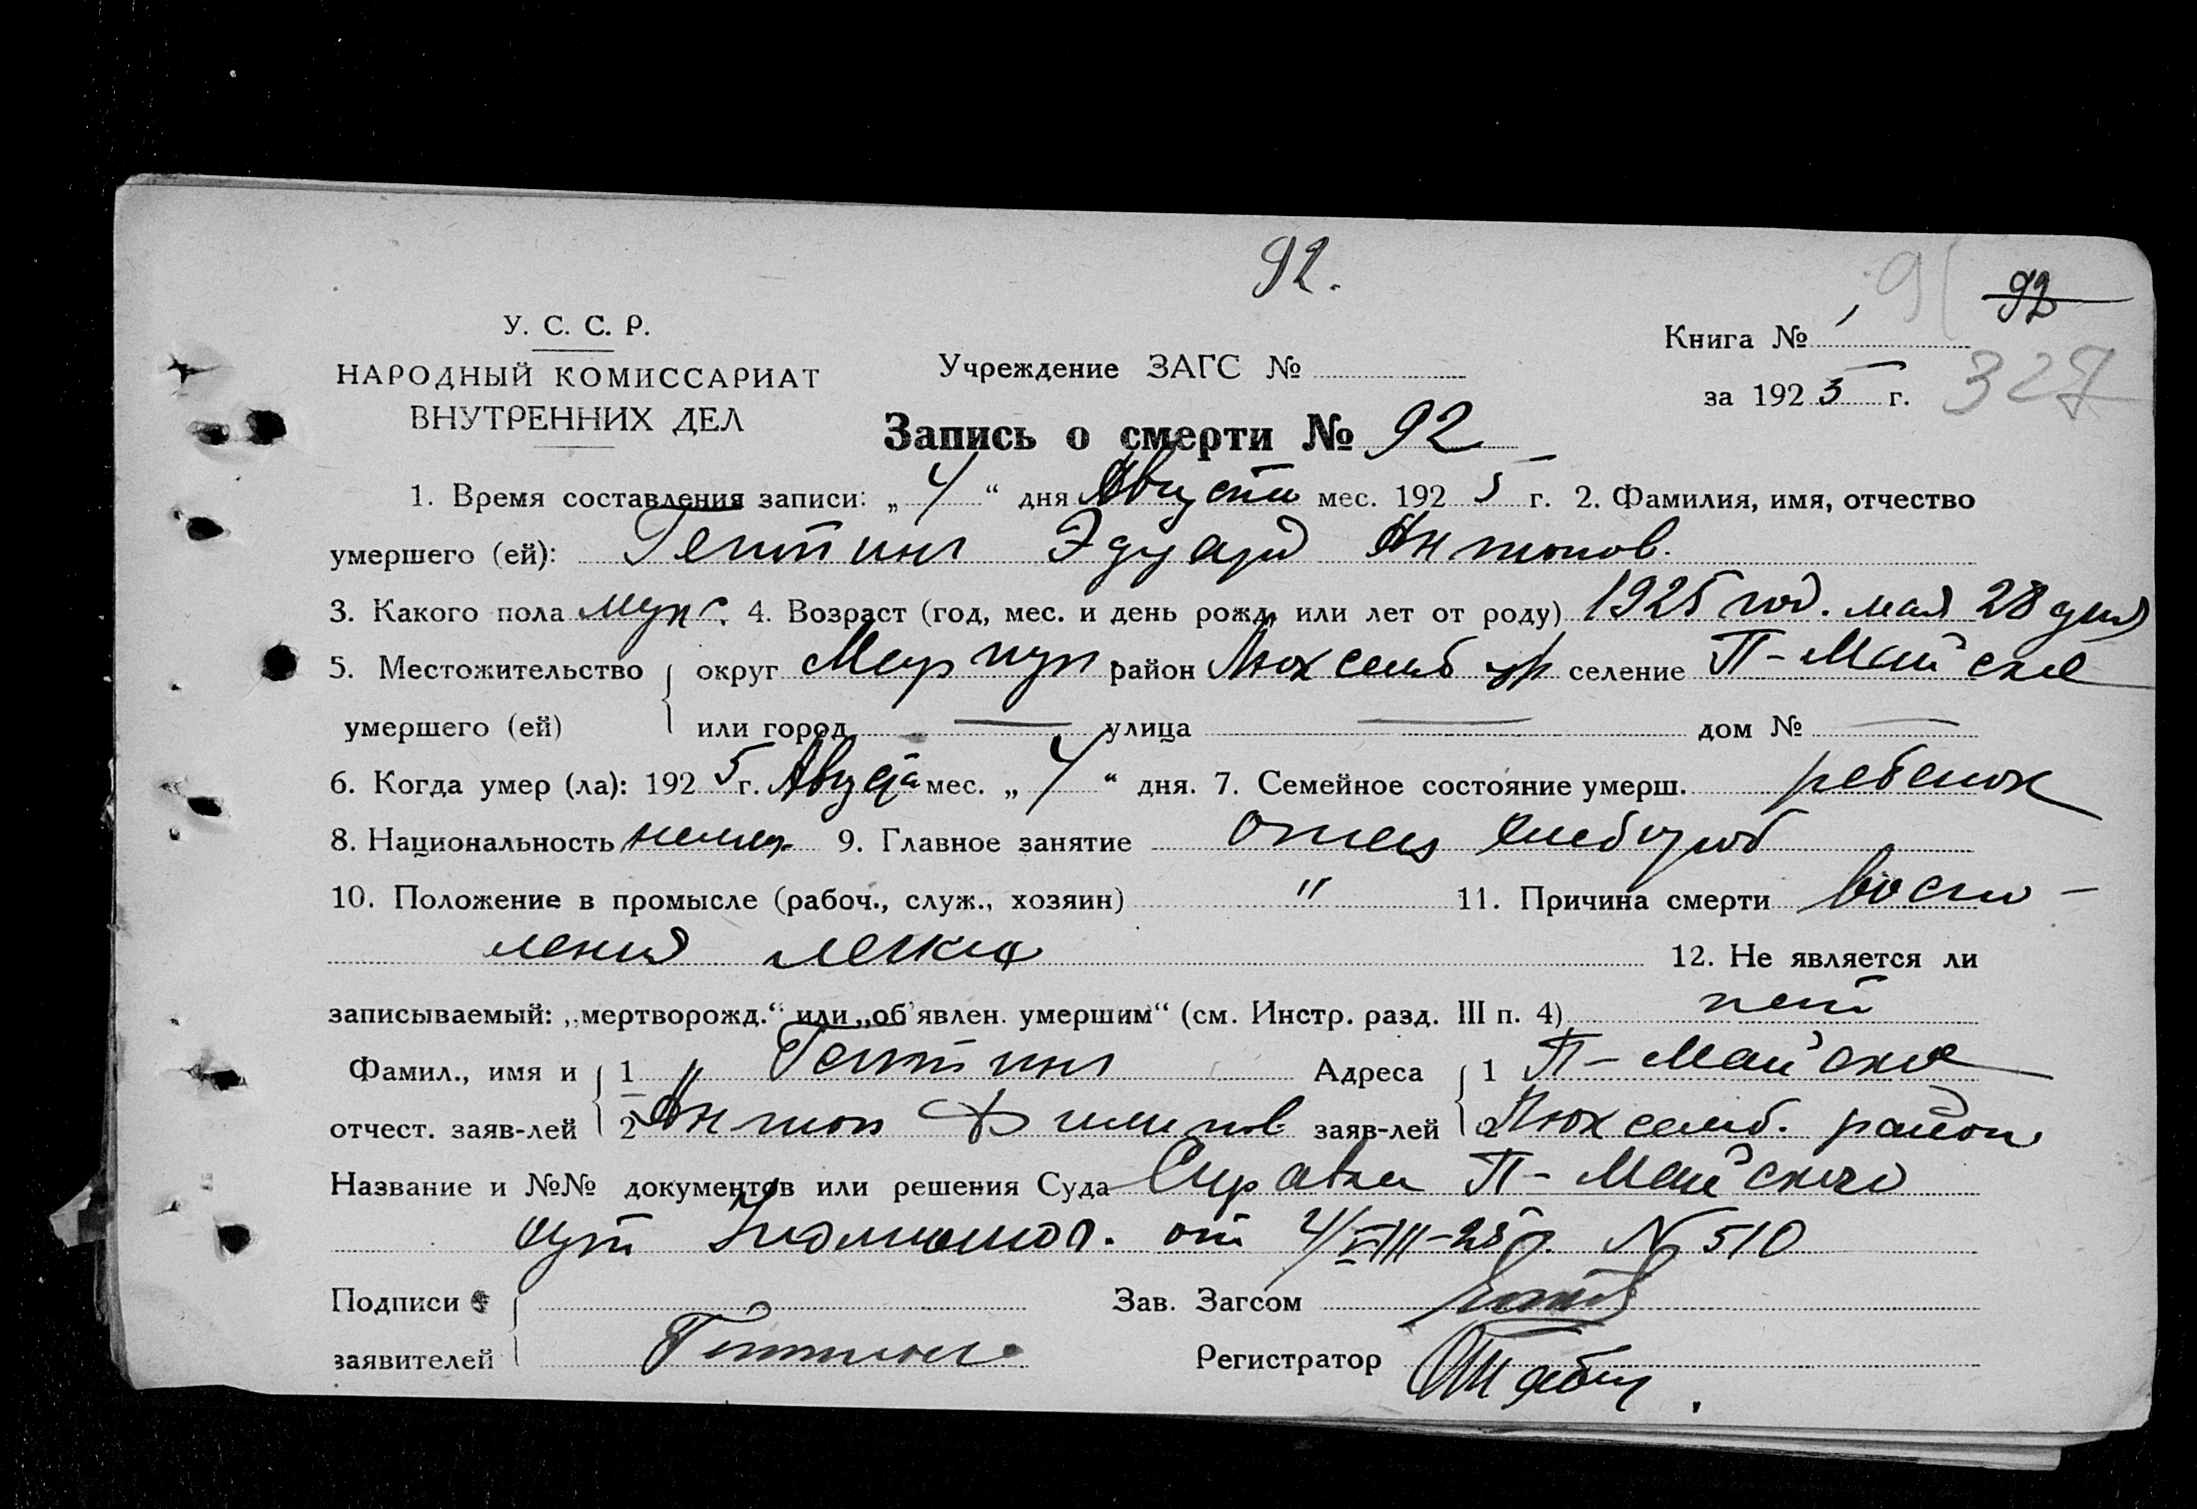 92.
91 92
У. С. С. Р.
НАРОДНЫЙ КОМИССАРИАТ
ВНУТРЕННИХ ДЕЛ
Учреждение ЗАГС №
Книга № 1
за 1925 г. 327
Запись о смерти № 92
1. Время составления записи: „ 4 “ дня Августа мес. 1925 г. 2. Фамилия, имя, отчество
умершего (ей): Геттинг Эдуард Антонов.
3. Какого пола муж. 4. Возраст (год, мес. и день рожд. или лет от роду) 1925 год. мая 28 дня
5. Местожительство округ Мариуп район Люксембур селение П-Майское
умершего (ей) или город — улица — дом № —
6. Когда умер (ла): 1925 г. Августа мес. „ 4 “ дня. 7. Семейное состояние умерш. ребенок
8. Национальность немец 9. Главное занятие отец хлебороб
10. Положение в промысле (рабоч., служ., хозяин) " 11. Причина смерти воспо-
ления легких 12. Не является ли
записываемый: „мертворожд.“ или „об'явлен. умершим“ (см. Инстр. разд. III п. 4) нет
Фамил., имя и 1 Геттинг Адреса 1 П-Майское
отчест. заяв-лей 2 Антон Филипов заяв-лей 2 Люксемб. район
Название и №№ документов или решения Суда Справка П-Майского
от 4/VIII-25 г. № 510
Подписи Зав. Загсом
заявителей Геттинг Регистратор